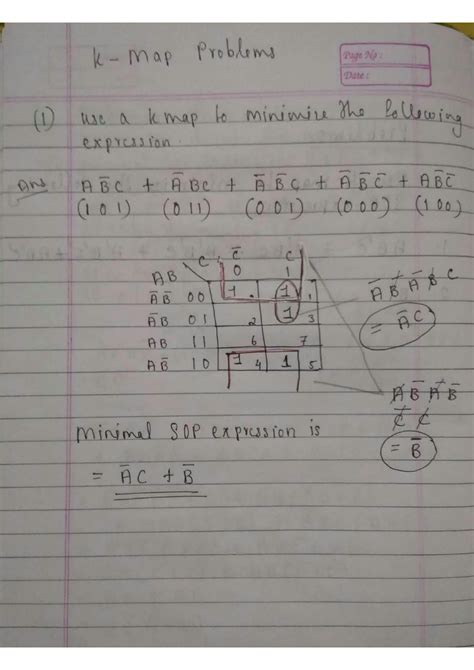 K-Map Problems
Page No:
Date:
(1) Use a k map to minimize the following
expression.
Ans A B̅ C + A̅ B C + A̅ B̅ C + A̅ B̅ C̅ + A B̅ C̅
(1 0 1) (0 1 1) (0 0 1) (0 0 0) (1 0 0)
C C̅ C
AB 0 1
A̅B̅ 00 1 1 1
A̅B 01 2 1 3
AB 11 6 7
AB̅ 10 1 4 1 5
A̅ B̅ A̅ B C
= A̅C
A̅ B̅ A B̅
C̅ C
= B̅
Minimal SOP expression is
= A̅C + B̅